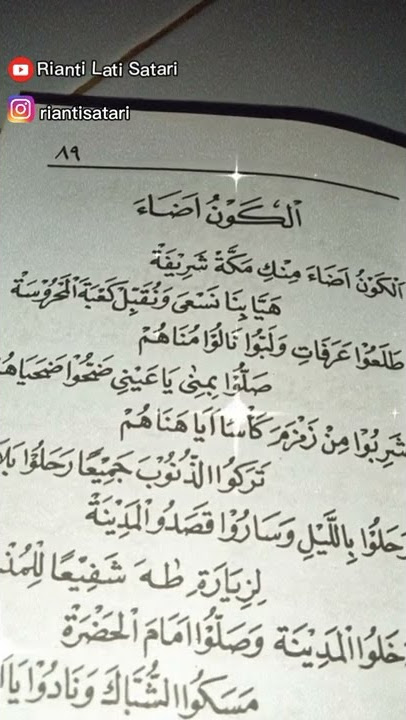 Rianti Lati Satari
riantisatari
٨٩
اَلْكَوْنُ اَضَاءَ
اَلْكَوْنُ اَضَاءَ مِنْكِ مَكَّةْ شَرِيْفَةْ
هَيَّا بِنَا نَسْعَى وَنُقَبِّلْ كَعْبَةَ الْمَحْرُوْسَةْ
طَلَعُوْا عَرَفَاتِ وَلَبَّوْا نَالُوْا مُنَاهُمْ
صَلَّوْا بِمِنٰى يَاعَيْنِي ضَحُّوْا ضَحَيَاهُمْ
شَرِبُوْا مِنْ زَمْزَمَ كَأْسًا اَيَا هَنَاهُمْ
تَرَكُوا الذُّنُوْبَ جَمِيْعًا رَحَلُوْا
رَحَلُوْا بِاللَّيْلِ وَسَارُوْا قَصَدُوا الْمَدِيْنَةْ
لِزِيَارَةِ طٰهَ شَفِيْعًا
دَخَلُوا الْمَدِيْنَةْ وَصَلَّوْا اَمَامَ الْحَضْرَةْ
مَسَكُوا الشُّبَّاكَ وَنَادَوْا